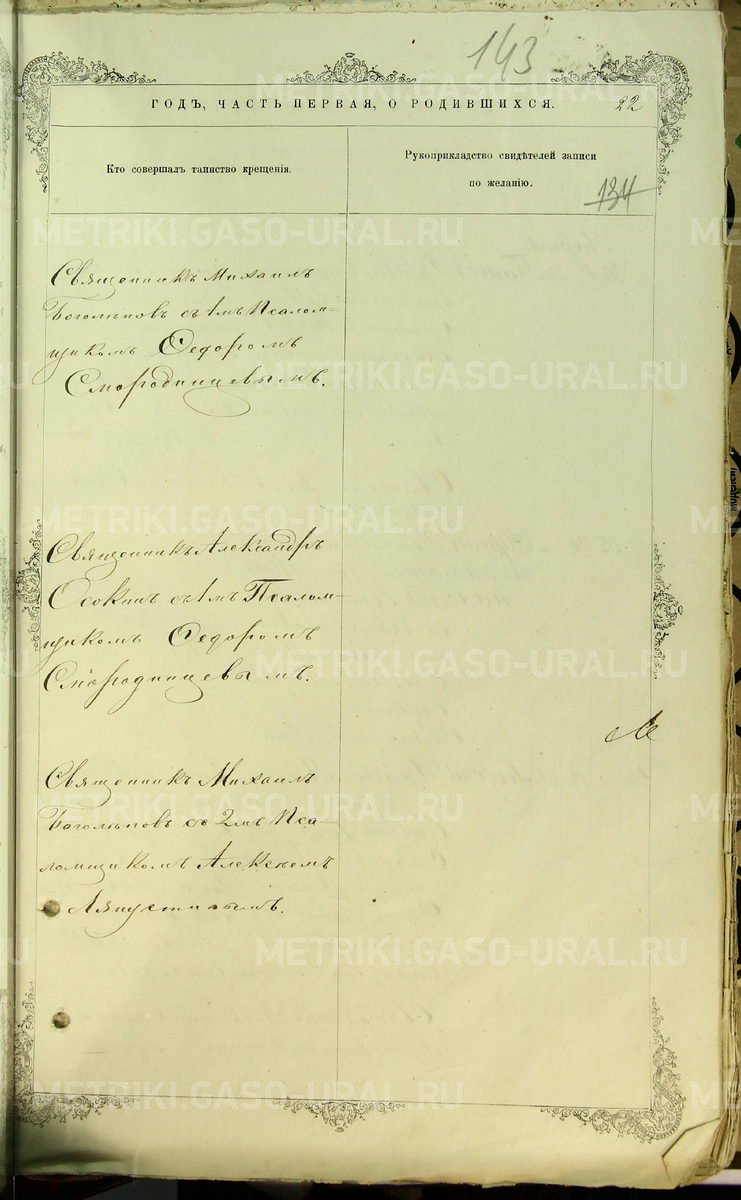 143
ГОДЪ, ЧАСТЬ ПЕРВАЯ, О РОДИВШИХСЯ.
22
Кто совершалъ таинство крещенія.
Рукоприкладство свидѣтелей записи
по желанію.
134
Священникъ Михаилъ
Боголѣповъ съ 1мъ Псалом-
щикомъ Ѳедоромъ
Смородинцевымъ.
Священникъ Александръ
Осокинъ съ 1мъ Псалом-
щикомъ Ѳедоромъ
Смородинцевымъ.
Священникъ Михаилъ
Боголѣповъ съ 2мъ Пса-
ломщикомъ Алексѣемъ
Ляпустинымъ.
METRIKI.GASO-URAL.RU